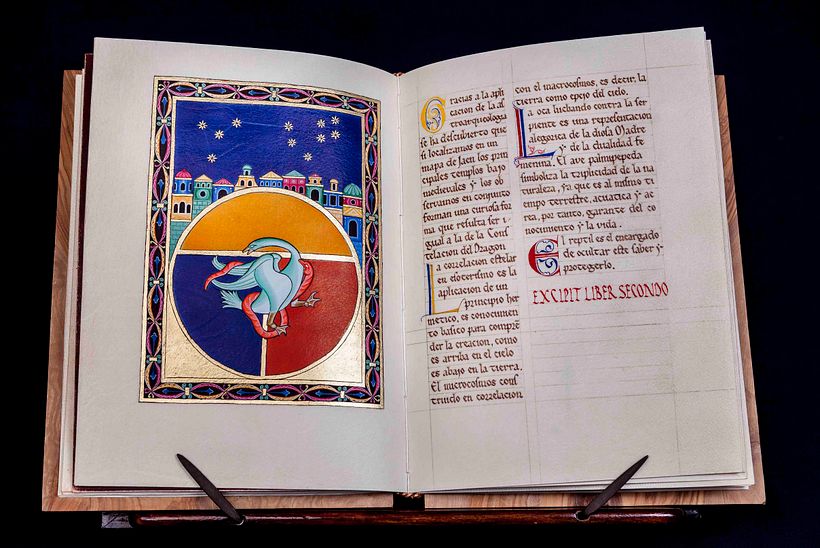 Gracias a la apli
cacion de la as
troarqueologia
se ha descubierto que
si localizamos en un
mapa de Jaen los prin
cipales templos bajo
medievales y los ob
servamos en conjunto
forman una curiosa for
ma que resulta ser i
gual a la de la Cons
telacion del Dragon
La correlacion estelar
en esoterismo es la
aplicacion de un
principio her
metico, es conocimien
to basico para compre
der la creacion, como
es arriba en el cielo
es abajo en la tierra.
El microcosmos cons
truido en correlacion
con el macrocosmos, es decir, la
tierra como espejo del cielo.
La oca luchando contra la ser
piente es una representacion
alegorica de la diosa Madre
y de la dualidad fe
menina. El ave palmipeda
simboliza la triplicidad de la na
turaleza, ya que es al mismo ti
empo terrestre, acuatica y ae
rea, por tanto, garante del co
nocimiento y la vida.
El reptil es el encargado
de ocultar este saber y
protegerlo.
EXCIPIT LIBER SECONDO